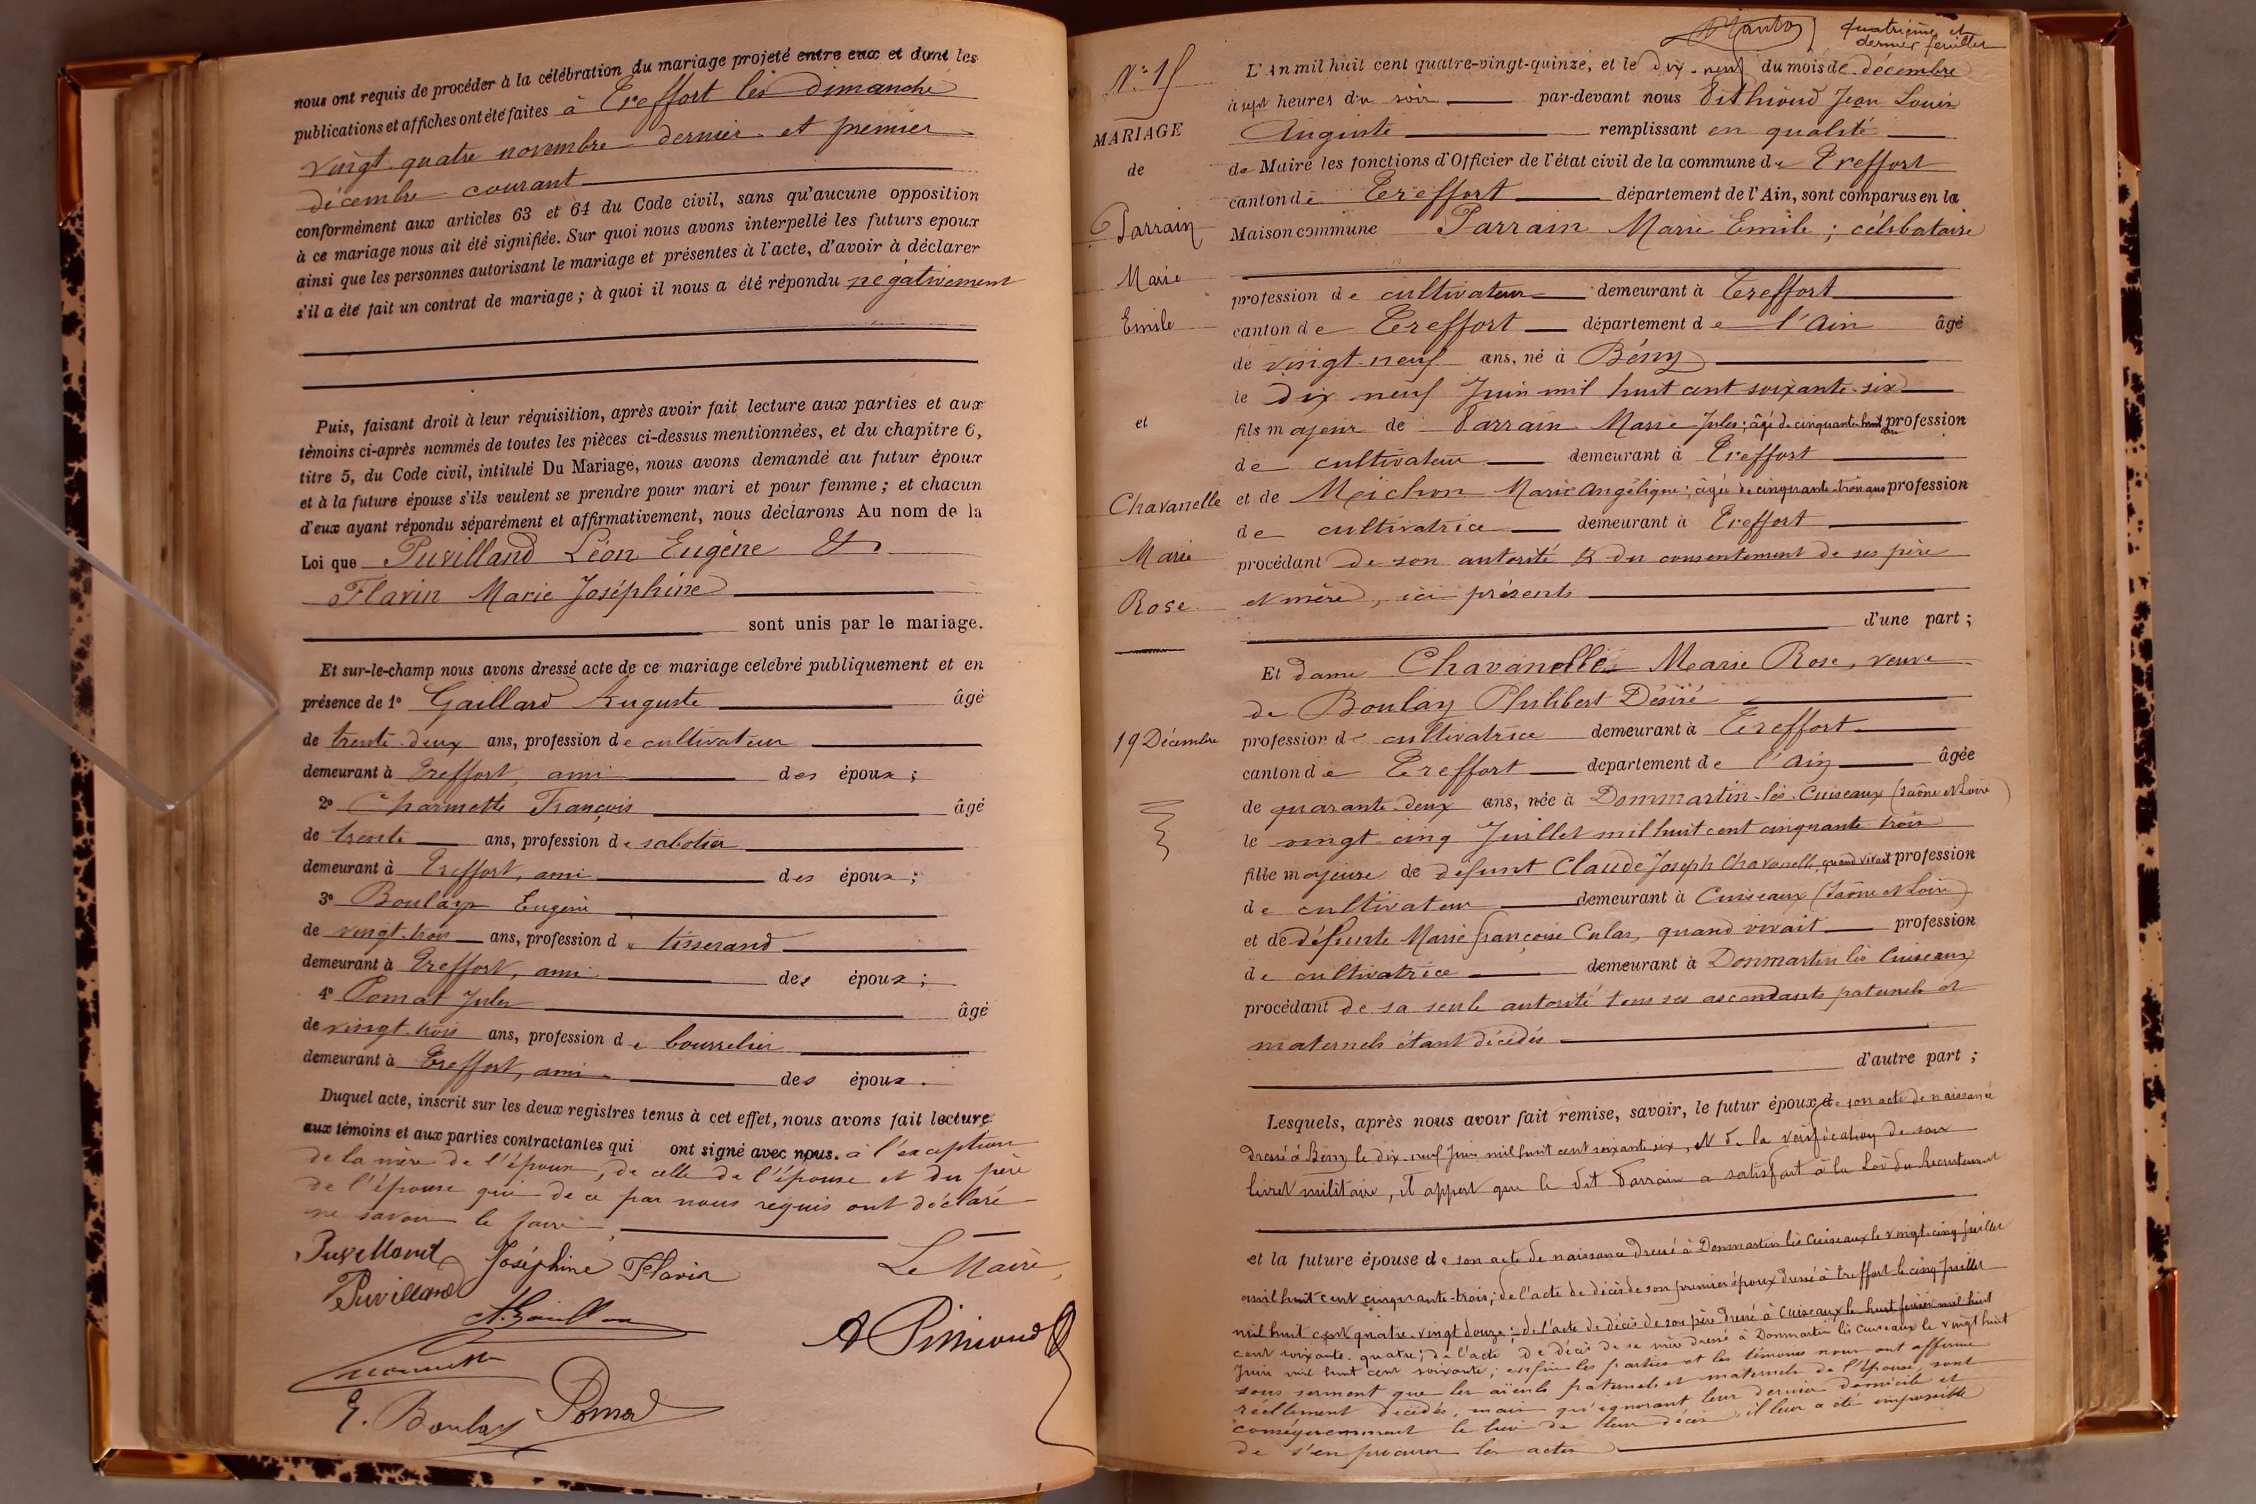 nous ont requis de procéder à la célébration du mariage projeté entre eux et dont les
publications et affiches ont été faites à Treffort les dimanche
vingt-quatre novembre dernier et premier
décembre courant
conformément aux articles 63 et 64 du Code civil, sans qu'aucune opposition
à ce mariage nous ait été signifiée. Sur quoi nous avons interpellé les futurs epoux
ainsi que les personnes autorisant le mariage et présentes à l'acte, d'avoir à déclarer
s'il a été fait un contrat de mariage ; à quoi il nous a été répondu négativement
Puis, faisant droit à leur réquisition, après avoir fait lecture aux parties et aux
témoins ci-après nommés de toutes les pièces ci-dessus mentionnées, et du chapitre 6,
titre 5, du Code civil, intitulé Du Mariage, nous avons demandé au futur époux
et à la future épouse s'ils veulent se prendre pour mari et pour femme ; et chacun
d'eux ayant répondu séparément et affirmativement, nous déclarons Au nom de la
Loi que Puvilland Léon Eugène &
Flavin Marie Joséphine
sont unis par le mariage.
Et sur-le-champ nous avons dressé acte de ce mariage celebré publiquement et en
présence de 1° Gaillard Auguste âgé
de trente-deux ans, profession de cultivateur
demeurant à Treffort, ami des époux ;
2° Charmette François âgé
de trente ans, profession de sabotier
demeurant à Treffort, ami des époux ;
3° Boulay Eugène
de vingt-trois ans, profession de tisserand
demeurant à Treffort, ami des époux ;
4° Pomat Jules âgé
de vingt-trois ans, profession de bourrelier
demeurant à Treffort, ami des époux.
Duquel acte, inscrit sur les deux registres tenus à cet effet, nous avons fait lecture
aux témoins et aux parties contractantes qui ont signé avec nous. à l'exception
de la mère de l'époux, de celle de l'épouse et du père
de l'épouse qui de ce par nous requis ont déclaré
ne savoir le faire
Puvilland Joséphine Flavin Le Maire,
Puvilland
A. Gaillard
Charmette
E. Boulay Pomat
quatrième et
dernier feuillet
N° 15
MARIAGE
de
Parrain
Marie
Emile
et
Chavanelle
Marie
Rose
19 Décembre
L'An mil huit cent quatre-vingt-quinze, et le dix-neuf du mois de décembre
à sept heures du soir par-devant nous Pithioud Jean Louis
Auguste remplissant en qualité
de Maire les fonctions d'Officier de l'état civil de la commune de Treffort
canton de Treffort département de l'Ain, sont comparus en la
Maison commune Parrain Marie Emile ; célibataire
profession de cultivateur demeurant à Treffort
canton de Treffort département de l'Ain âgé
de vingt-neuf ans, né à Bény
le dix-neuf Juin mil huit cent soixante-six
fils majeur de Parrain Marie Jules ; âgé de cinquante-huit ans profession
de cultivateur demeurant à Treffort
et de Meichon Marie Angélique ; âgée de cinquante-trois ans profession
de cultivatrice demeurant à Treffort
procédant de son autorité & du consentement de ses père
et mère, ici présents
d'une part ;
Et dame Chavanelle Marie Rose, veuve
de Boulay Philibert Désiré
profession de cultivatrice demeurant à Treffort
canton de Treffort département de l'Ain âgée
de quarante-deux ans, née à Dommartin-lès-Cuiseaux (Saône et Loire)
le vingt-cinq Juillet mil huit cent cinquante-trois
fille majeure de défunt Claude Joseph Chavanelle, quand vivait profession
de cultivateur demeurant à Cuiseaux (Saône et Loire)
et de défunte Marie Françoise Culas, quand vivait profession
de cultivatrice demeurant à Donmartin lès Cuiseaux
procédant de sa seule autorité tous ses ascendants paternels et
maternels étant décédés
d'autre part ;
Lesquels, après nous avoir fait remise, savoir, le futur époux de son acte de naissance
dressé à Bény le dix-neuf Juin mil huit cent soixante six, et de la vérification de son
livret militaire, il appert que le dit Parrain a satisfait à la Loi du Recrutement
et la future épouse de son acte de naissance dressé à Donmartin lès Cuiseaux le vingt-cinq Juillet
mil huit cent cinquante-trois ; de l'acte de décès de son premier époux dressé à Treffort le cinq Juillet
mil huit cent quatre-vingt douze ; de l'acte de décès de son père dressé à Cuiseaux le huit février mil huit
cent soixante-quatre ; de l'acte de décès de sa mère dressé à Donmartin lès Cuiseaux le vingt huit
Juin mil huit cent soixante ; enfin les parties et les témoins nous ont affirmé
sous serment que les aïeuls paternels et maternels de l'épouse, sont
réellement décédés, mais qu'ignorant leur dernier domicile et
conséquemment le lieu de leur décès, il leur a été impossible
de s'en procurer les actes